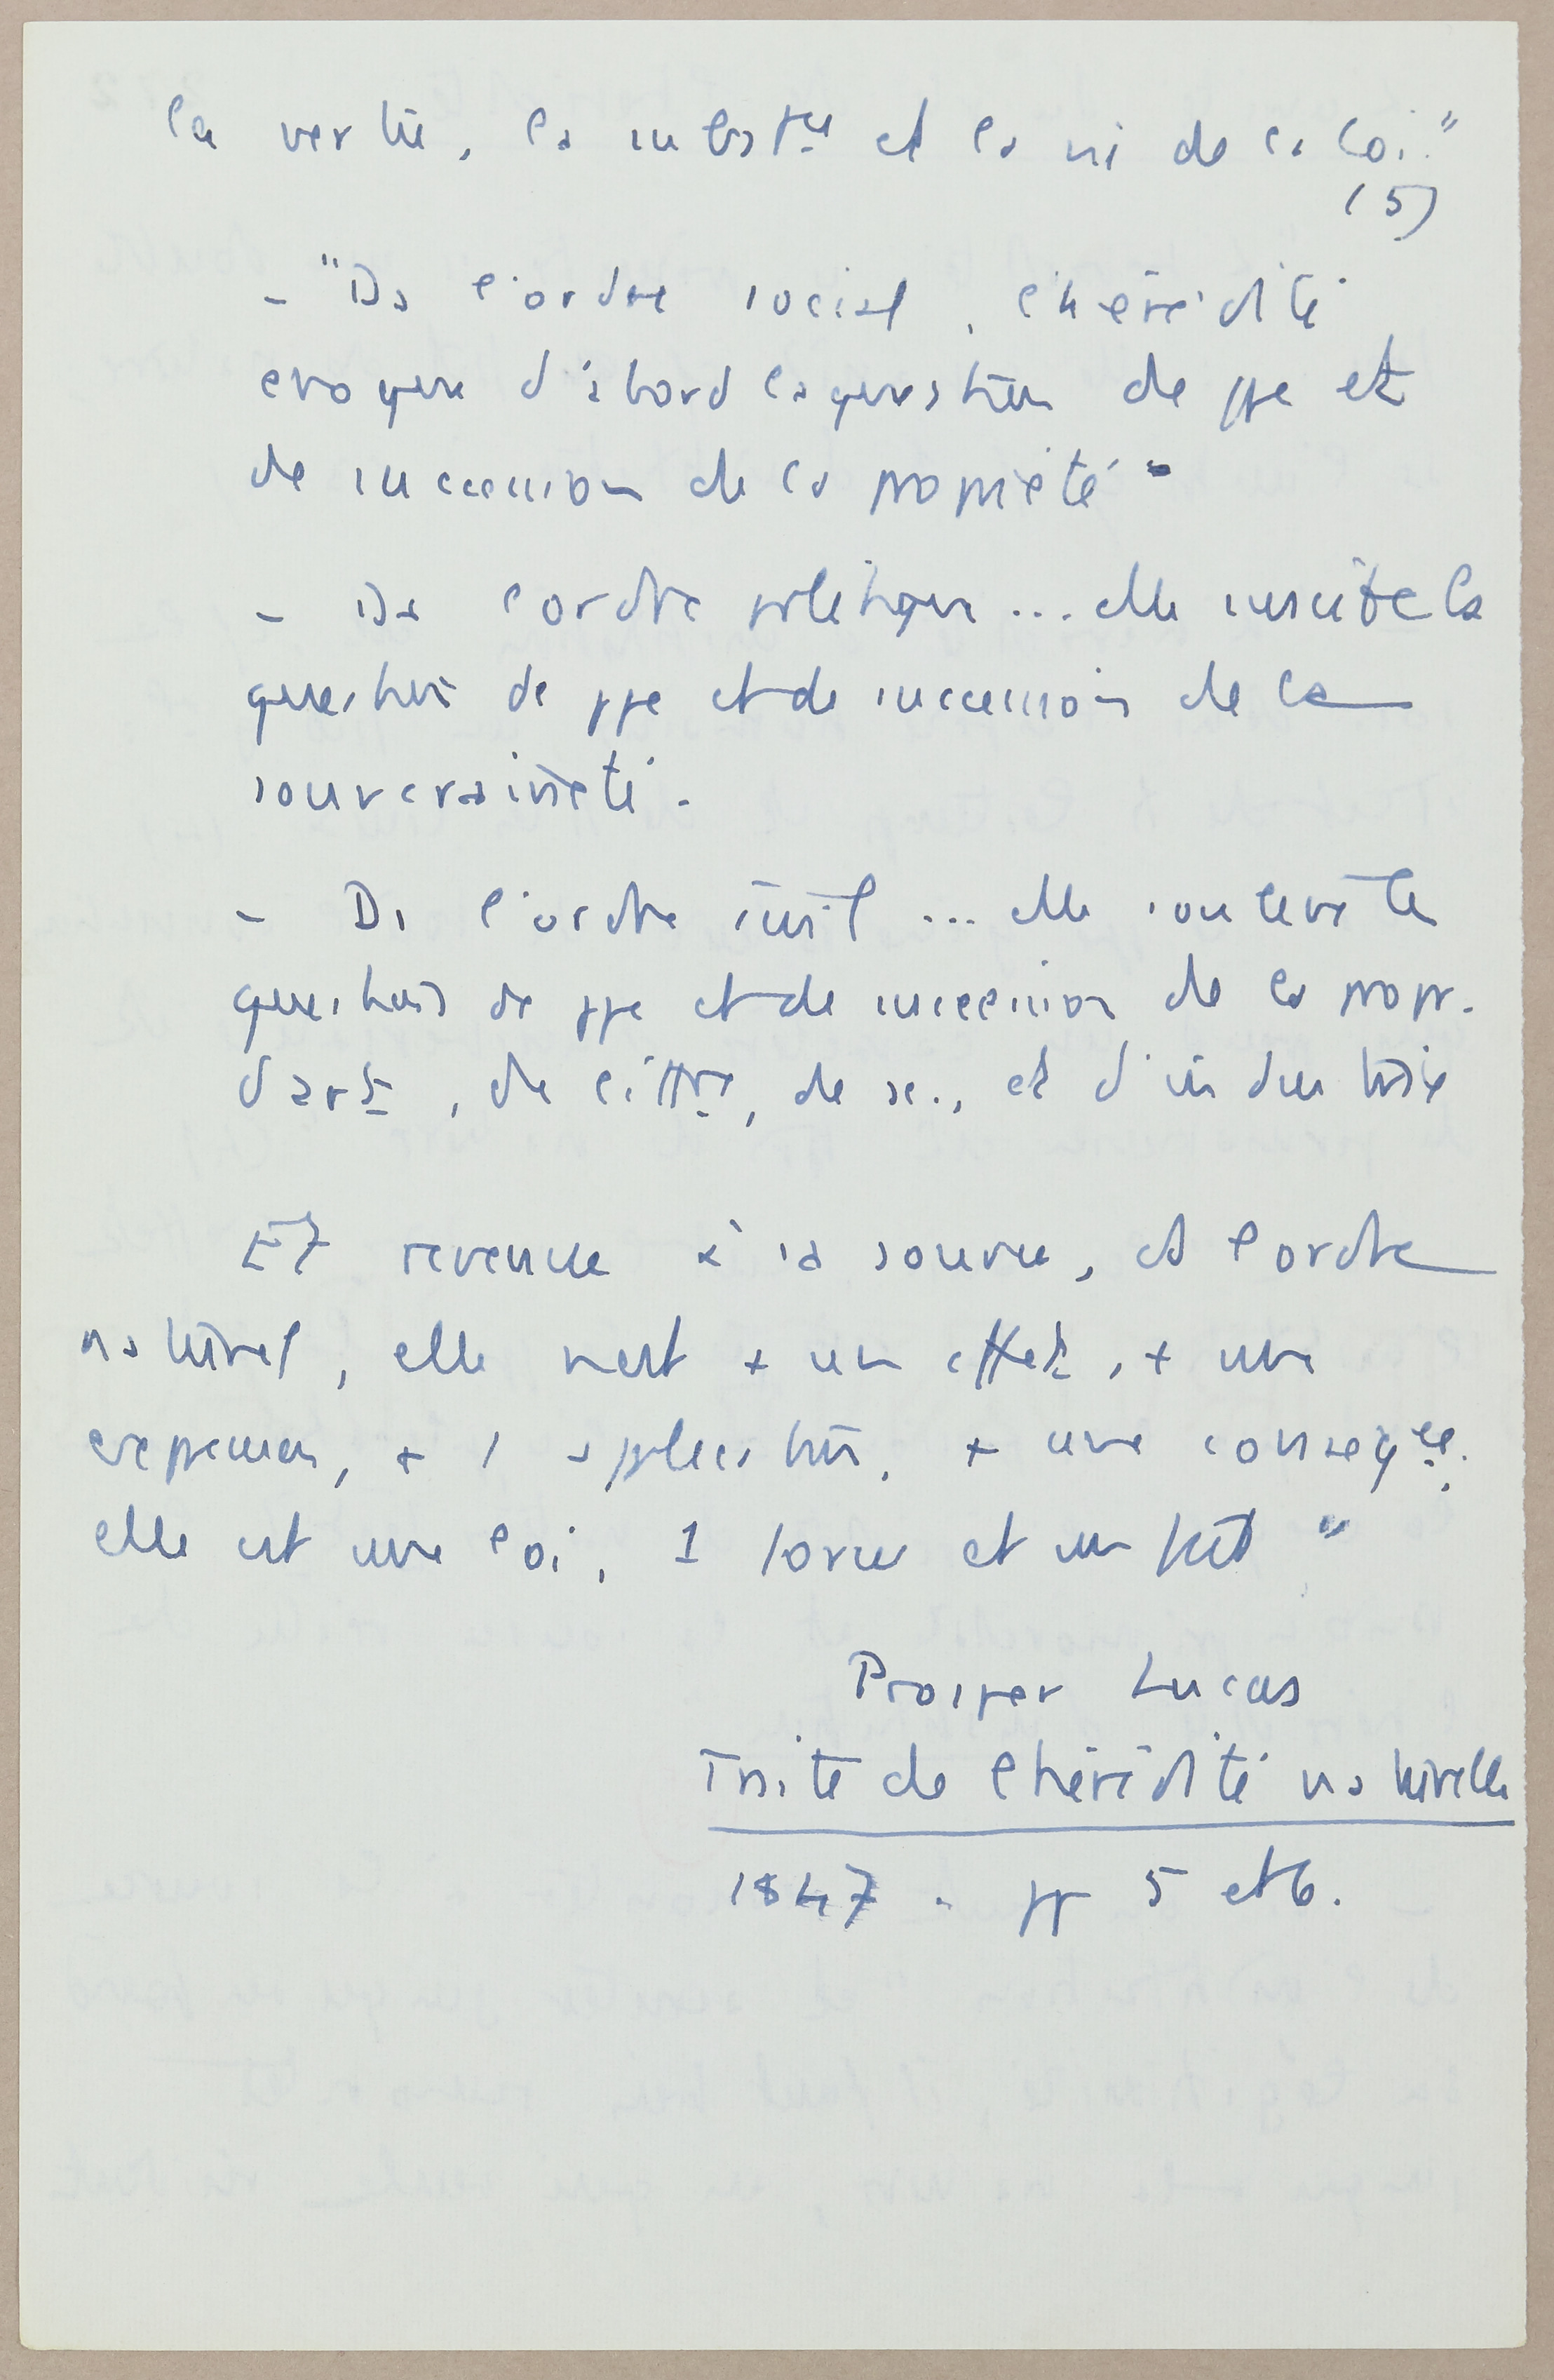 la vertu, la substce et la vie de la loi."
(5)
- "Ds l'ordre social, l'hérédité
evoque d'abord la question de ppe et
de succession de la propriété"
- Ds l'ordre politique... elle suscite la
question de ppe et de succession de la
souveraineté.
- Ds l'ordre civil ... elle souleve la
question de ppe et de succession de la propr.
d'arts, de littre, de sc., et d'industrie
Et revenue à sa source, ds l'ordre
naturel, elle n'est + un effet, + une
expression, + 1 application, + une conseqce,
elle est une loi, 1 force et un fait"
Prosper Lucas
Traité de l'hérédité naturelle
1847. pp 5 et 6.